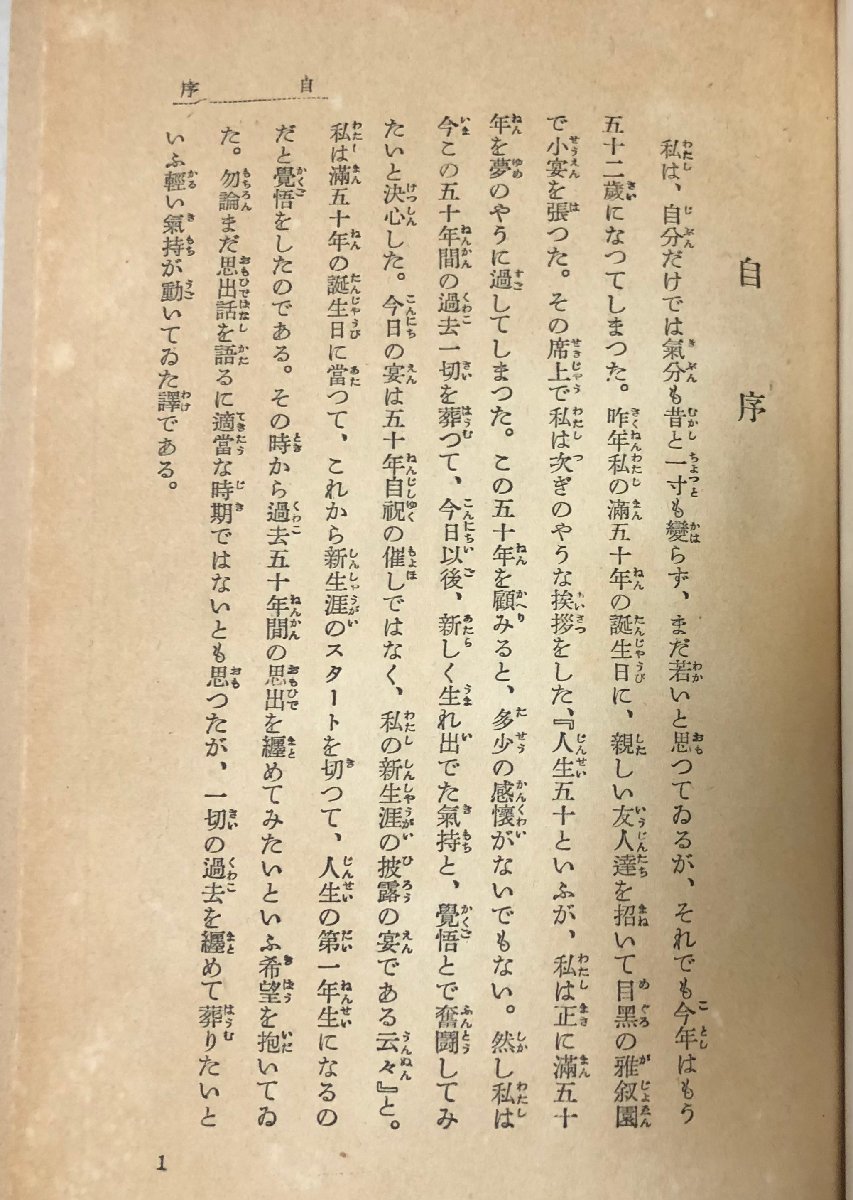 自序
自序
私は、自分だけでは氣分も昔と一寸も變らず、まだ若いと思つてゐるが、それでも今年はもう
五十二歲になつてしまつた。昨年私の滿五十年の誕生日に、親しい友人達を招いて目黑の雅叙園
で小宴を張つた。その席上で私は次ぎのやうな挨拶をした、『人生五十といふが、私は正に滿五十
年を夢のやうに過してしまつた。この五十年を顧みると、多少の感懷がないでもない。然し私は
今この五十年間の過去一切を葬つて、今日以後、新しく生れ出でた氣持と、覺悟とで奮鬪してみ
たいと決心した。今日の宴は五十年自祝の催しではなく、私の新生涯の披露の宴である云々』と。
私は滿五十年の誕生日に當つて、これから新生涯のスタートを切つて、人生の第一年生になるの
だと覺悟をしたのである。その時から過去五十年間の思出を纏めてみたいといふ希望を抱いてゐ
た。勿論まだ思出話を語るに適當な時期ではないとも思つたが、一切の過去を纏めて葬りたいと
いふ輕い氣持が動いてゐた譯である。
1